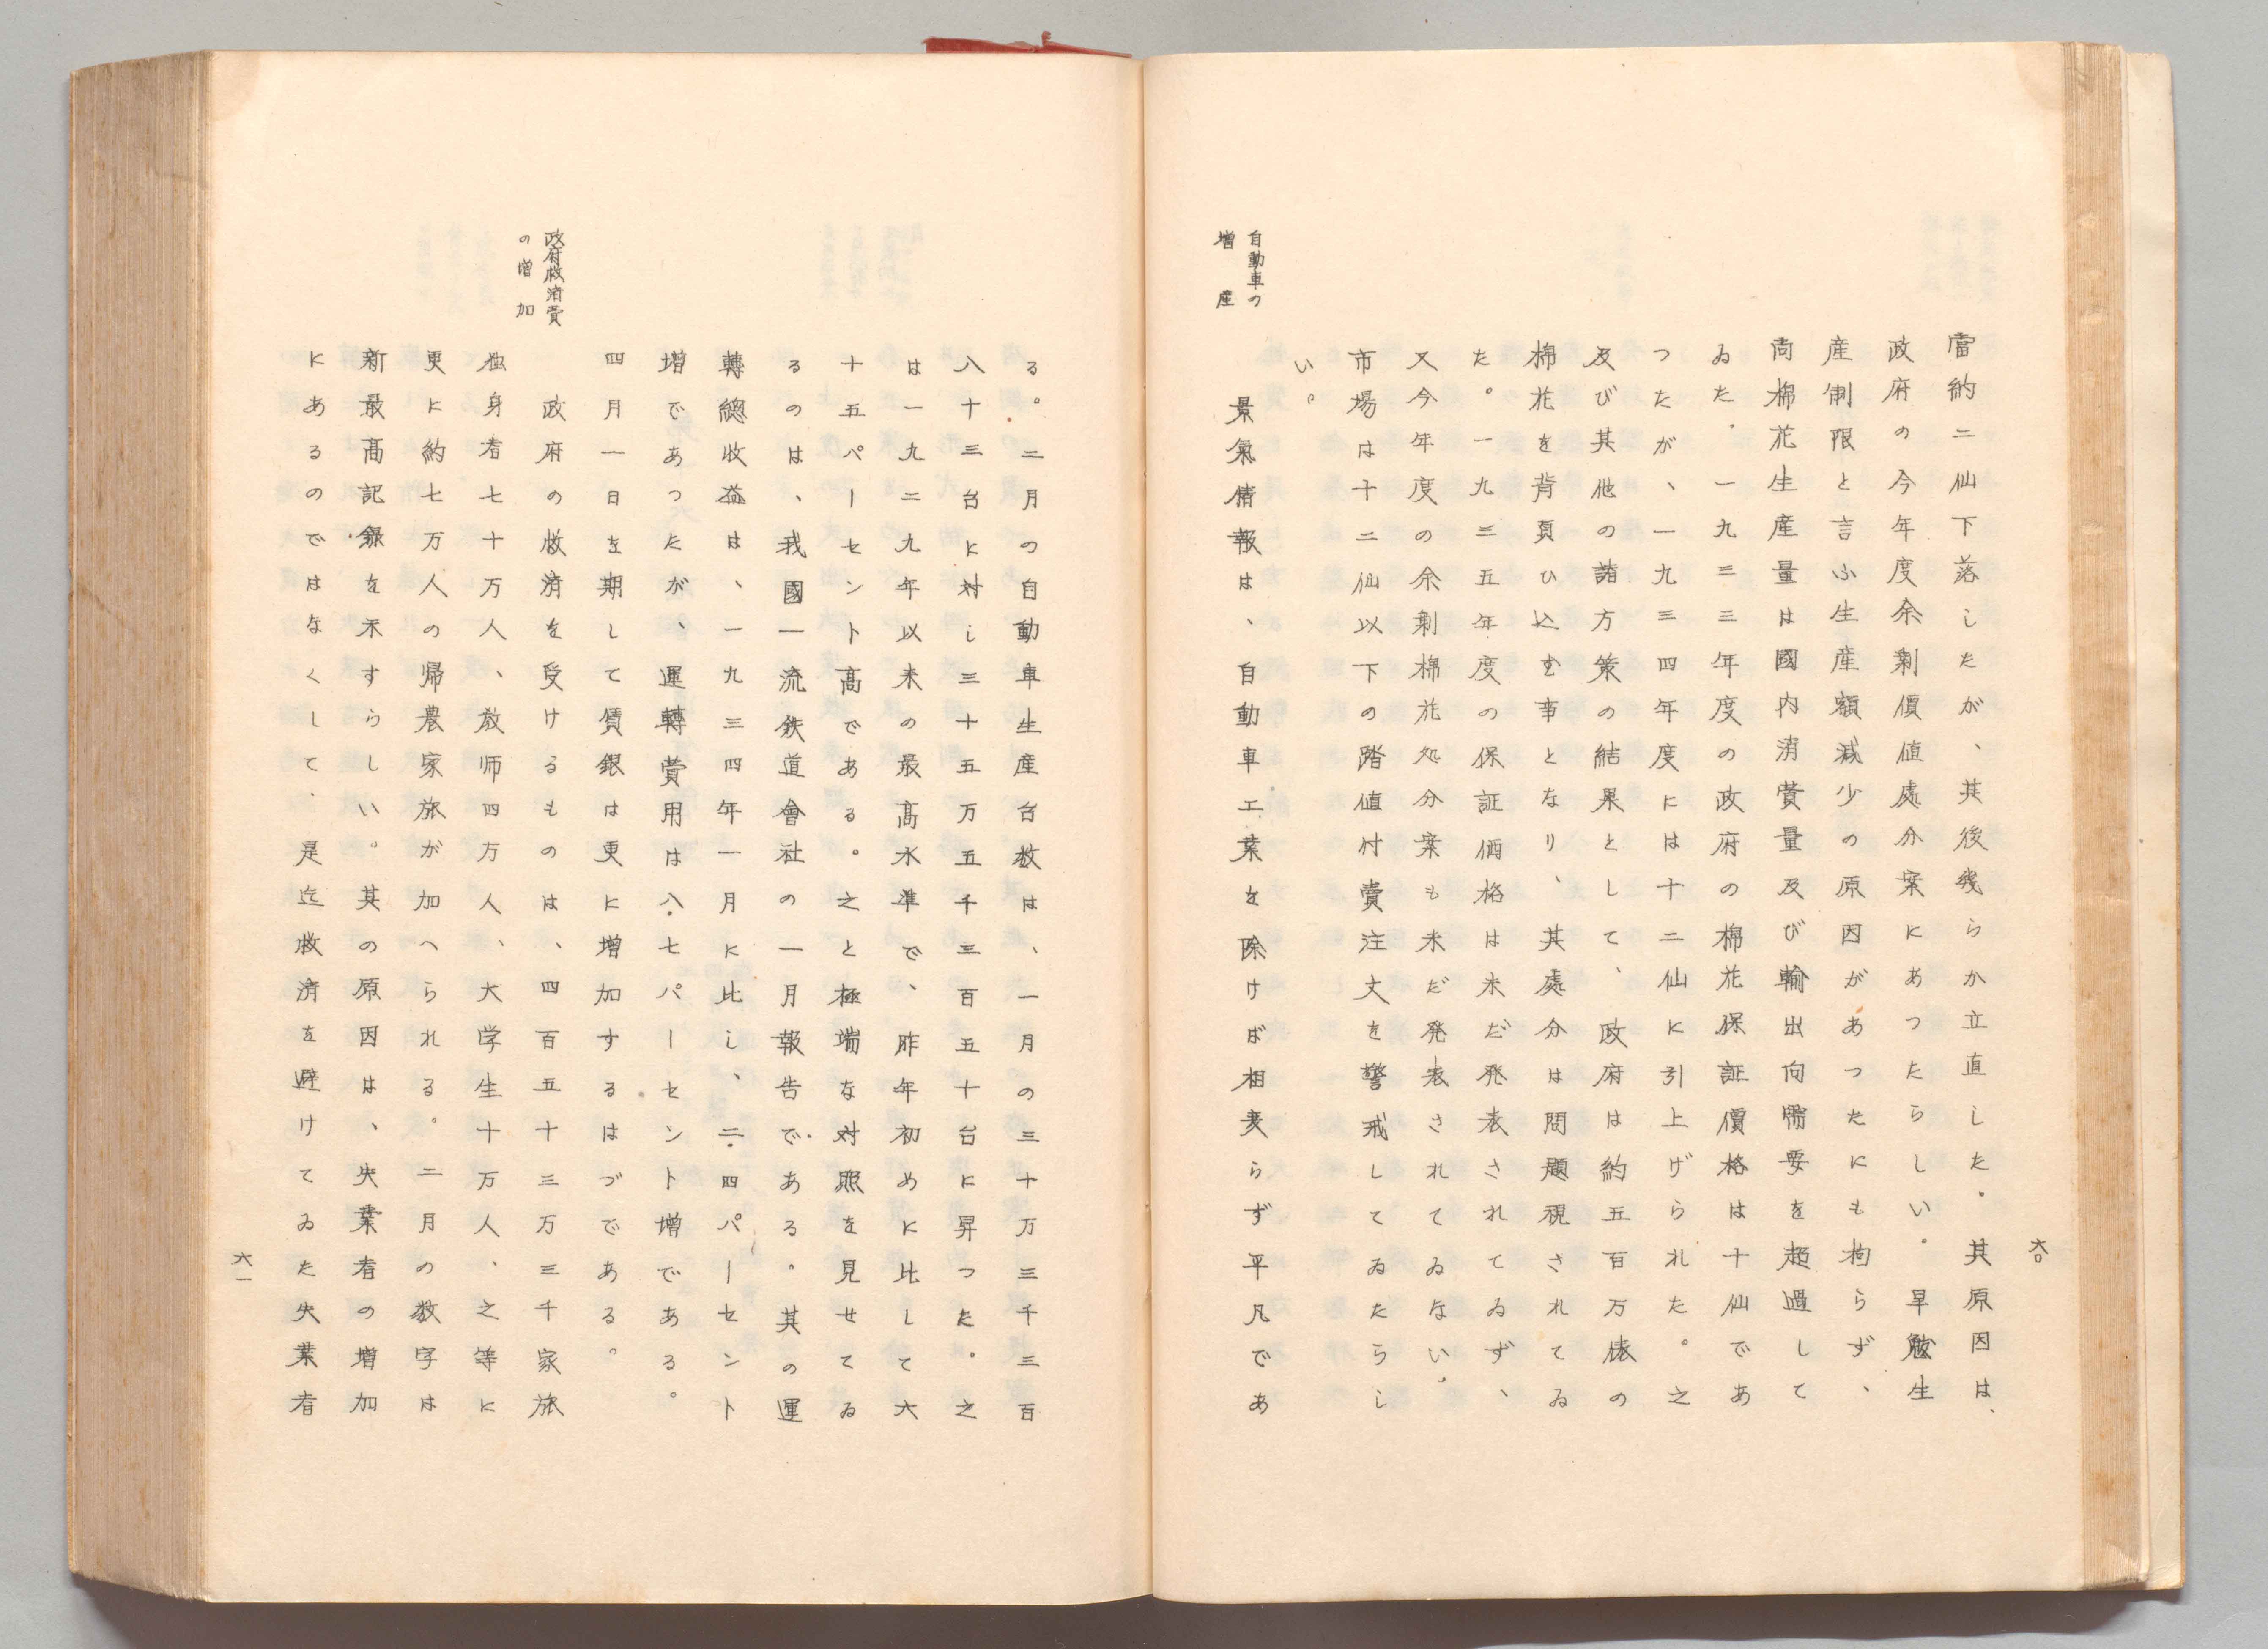 六〇
當約二仙下落したが、其後幾らか立直した。其原因は、
政府の今年度余剰價値處分案にあつたらしい。早魃生
産制限と言ふ生産額減少の原因があつたにも拘らず、
尚棉花生産量は國内消費量及び輸出向需要を超過して
ゐた。一九三三年度の政府の棉花保証價格は十仙であ
つたが、一九三四年度には十二仙に引上げられた。之
及び其他の諸方策の結果として、政府は約五百万俵の
棉花を背負ひ込む事となり、其處分は問題視されてゐ
た。一九三五年度の保証価格は未だ発表されてゐず、
又今年度の余剰棉花処分案も未だ発表されてゐない。
市場は十二仙以下の踏値付賣注文を警戒してゐたらし
い。
自動車の
増産
景氣情報は、自動車工業を除けば相変らず平凡であ
る。二月の自動車生産台数は、一月の三十万三千三百
八十三台に対し三十五万五千三百五十台に昇つた。之
は一九二九年以来の最高水準で、昨年初めに比して六
十五パーセント高である。之と極端な対照を見せてゐ
るのは、我國一流鉄道會社の一月報告である。其の運
轉總收益は、一九三四年一月に比し、二・四パーセント
増であつたが、運轉費用は八・七パーセント増である。
四月一日を期して賃銀は更に増加するはづである。
政府救済費
の増加
政府の救済を受けるものは、四百五十三万三千家族
独身者七十万人、教師四万人、大学生十万人、之等に
更に約七万人の帰農家族が加へられる。二月の数字は
新最高記録を示すらしい。其の原因は、失業者の増加
にあるのではなくして、是迄救済を避けてゐた失業者
六一